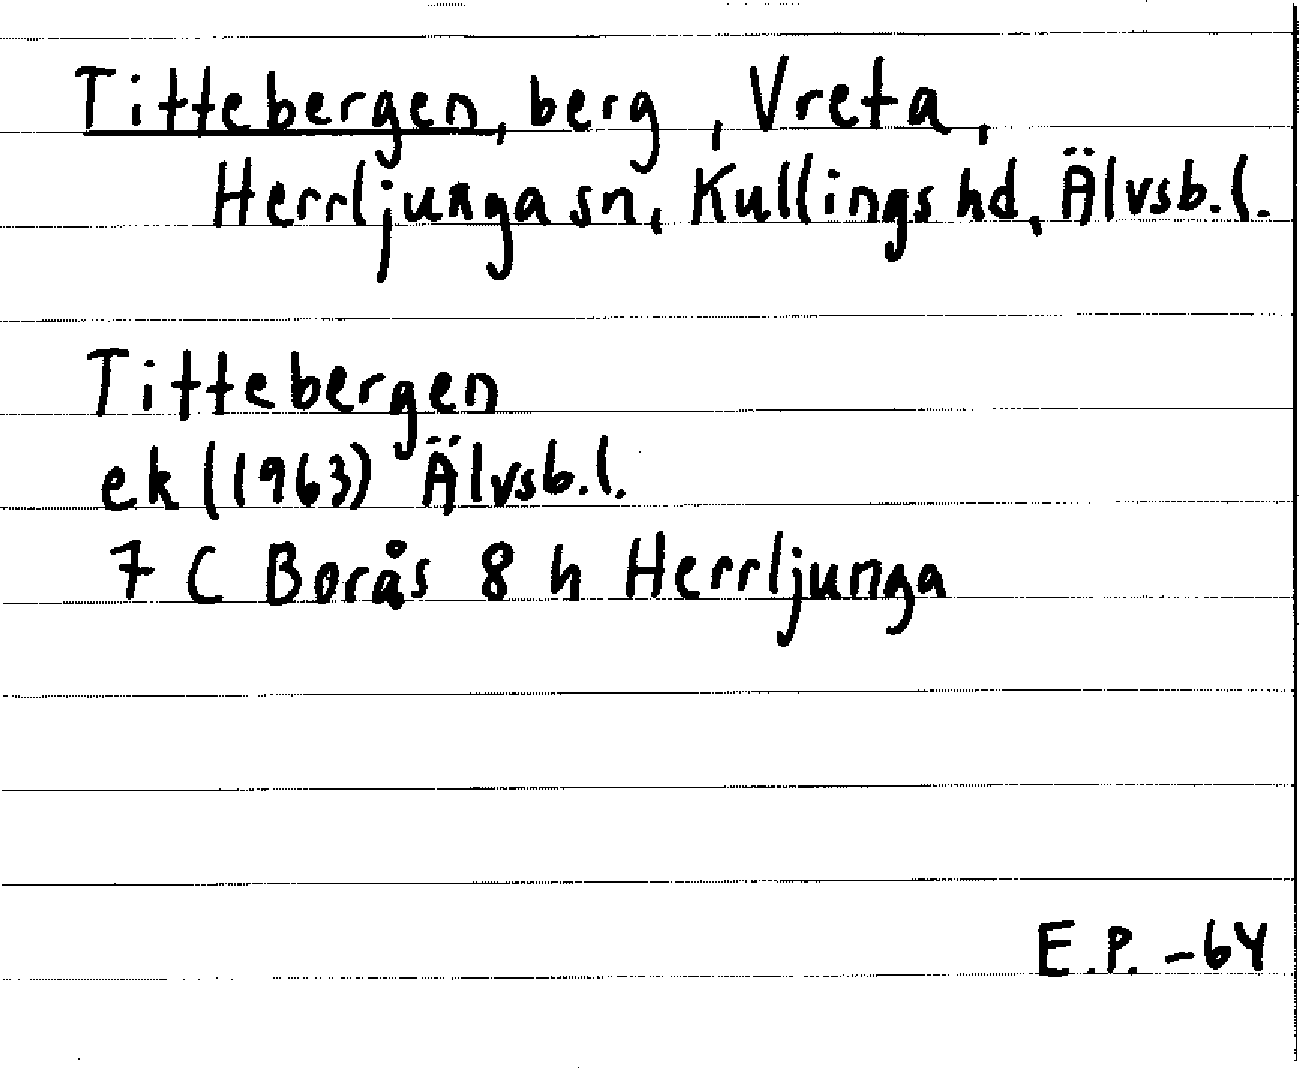 Tittebergen, berg, Vreta,
Herrljunga sn, Kullings hd, Älvsb. l.
Tittebergen
ek (1963) Älvsb. l.
7 C Borås 8 h Herrljunga
E.P. -64